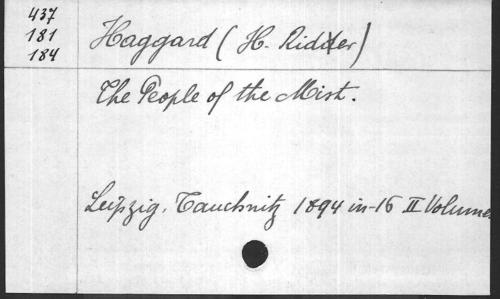 437
181
184
Haggard (H. Ridder)
The People of the Mist.
Leipzig, Tauchnitz 1894 in-16 II Volumes